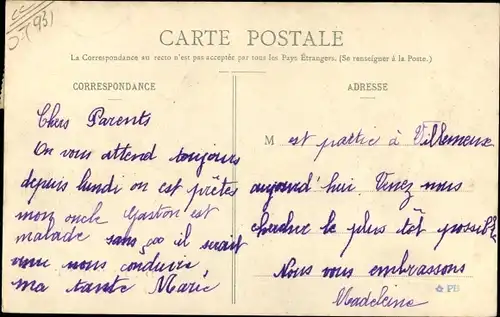 CC
CARTE POSTALE
La Correspondance au recto n'est pas acceptée par tous les Pays Étrangers. (Se renseigner à la Poste.)
CORRESPONDANCE
Chers Parents
On vous attend toujours
depuis lundi on est prêtes
mon oncle Gaston est
malade sans ça il serait
venu nous conduire
ma tante Marie
ADRESSE
M est partie à Villemeux
aujourd'hui. Venez nous
chercher le plus tôt possible
Nous vous embrassons
Madeleine
PB